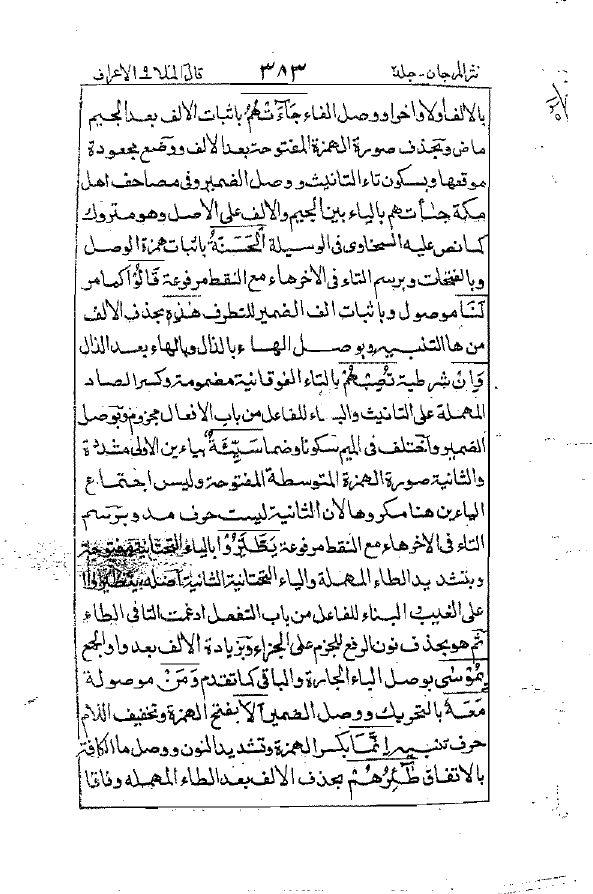 نثر المرجان - جلد ٣٨٣ قال الملا ٩ الاعراف
بالالف اولا واخرا ووصل الفاء جَآءَتْهُمُ باثبات الالف بعد الجيم
ماض وبحذف صورة الهمزة المفتوحة بعد الالف ووضع مجعودة
موقعها وبسكون تاء التانيث ووصل الضمير وفى مصاحف اهل
مكة جيأتهم بالياء بين الجيم والالف على الاصل وهو متروك
كما نص عليه السخاوى فى الوسيلة الْحَسَنَةُ باثبات همزة الوصل
وبالفتحات وبرسم التاء فى الاخر هاء مع النقط مرفوعة قَالُوْا كما مر
لَنَا موصول وباثبات الف الضمير للتطرف هٰذِهٖ بحذف الالف
من ها التنبيه وبوصل الهاء بالذال وبالهاء بعد الذال
وَاِنْ شرطية تُصِبْهُمْ بالتاء الفوقانية مضمومة وكسر الصاد
المهملة على التانيث والبناء للفاعل من باب الافعال مجزوم وبوصل
الضمير واختلف فى الميم سكونا وضما سَيِّئَةٌ بياءين الاولى مشددة
والثانية صورة الهمزة المتوسطة المفتوحة وليس اجتماع
الياءين هنا مكروها لان الثانية ليست حرف مد وبرسم
التاء فى الاخر هاء مع النقط مرفوعة يَطَّيَّرُوْا بالياء التحتانية مفتوحة
وبتشديد الطاء المهملة والياء التحتانية الثانية اصله يتطيروا
على الغيب والبناء للفاعل من باب التفعل ادغمت التا فى الطاء
ثم هو بحذف نون الرفع للجزم على الجزاء وبزيادة الالف بعد واو الجمع
بِمُوْسٰى بوصل الباء الجارة والباقى كما تقدم وَمَنْ موصولة
مَعَهٗ بالتحريك ووصل الضمير اَلَآ بفتح الهمزة وتخفيف اللام
حرف تنبيه اِنَّمَا بكسر الهمزة وتشديد النون ووصل ما الكافة
بالاتفاق طٰٓئِرُهُمْ بحذف الالف بعد الطاء المهملة وفاقا